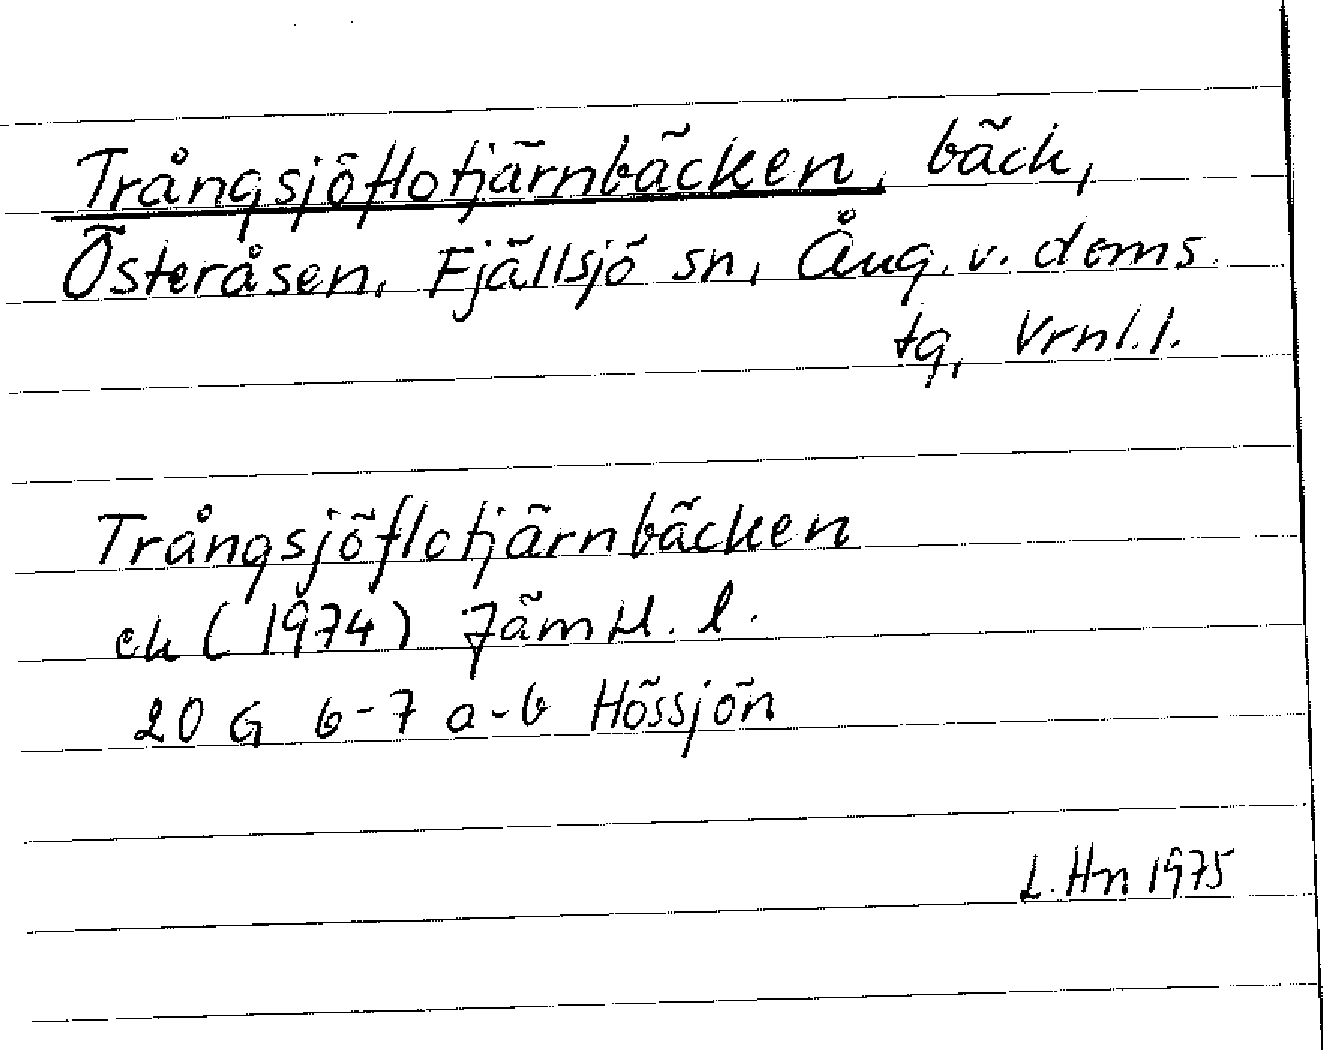 Trångsjöflotjärnbäcken, bäck,
Österåsen, Fjällsjö sn, Ång. v. doms.
tg, Vrnl. l.
Trångsjöflotjärnbäcken
ek (1974) Jämtl. l.
20 G 6-7 a-b Hössjön
L. Hn 1975